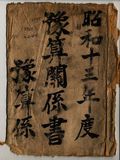 昭和十三年度
豫算關係書
豫算係